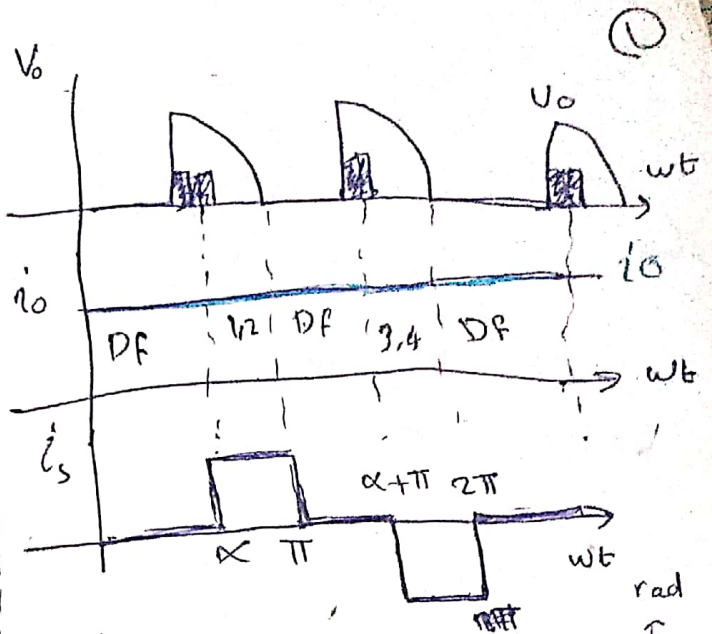 1
Vo
Vo
wt
io
io
DF 1,2 DF 3,4 DF
wt
is
α+π 2π
α π
wt
rad